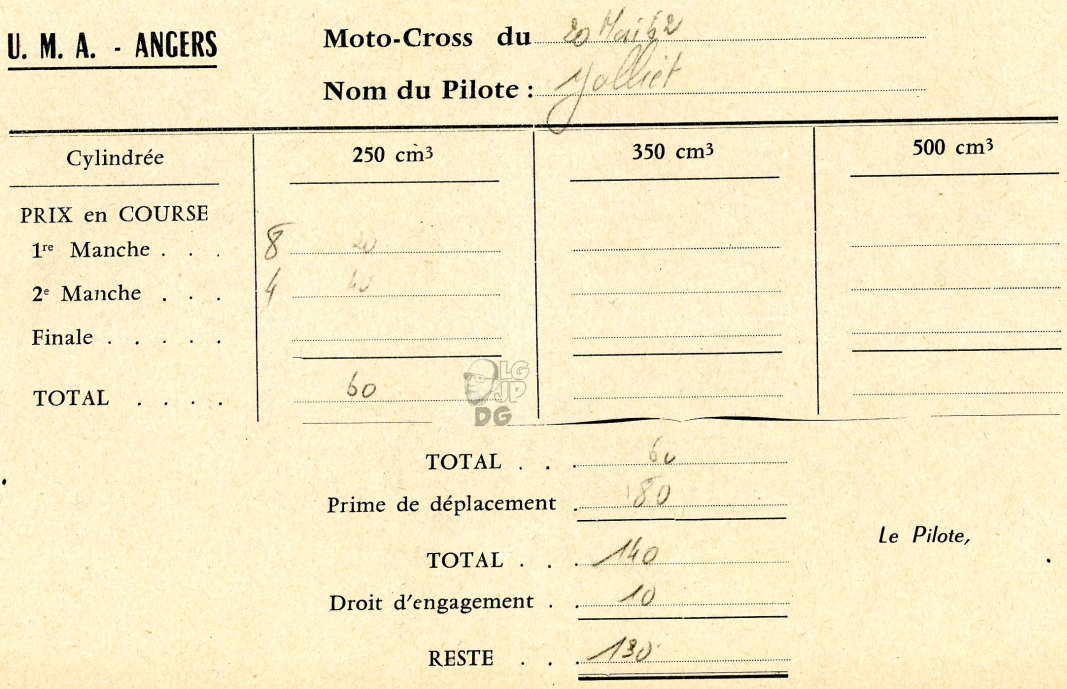 U. M. A. - ANGERS
Moto-Cross du 20 Mai 62
Nom du Pilote : Jolliet
Cylindrée 250 cm³ 350 cm³ 500 cm³
PRIX en COURSE
1re Manche . . . 8 20
2e Manche . . . 4 40
Finale . . . . .
TOTAL . . . . 60
LG
JP
DG
TOTAL . . . 60
Prime de déplacement . 80
TOTAL . . . 140
Droit d'engagement . . 10
RESTE . . . 130
Le Pilote,